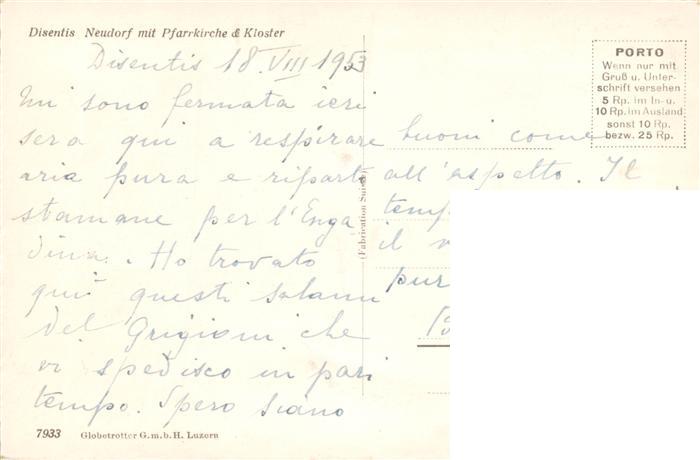 Disentis Neudorf mit Pfarrkirche & Kloster
Disentis 18.VIII 1953
Mi sono fermata ieri
sera qui a respirare
aria pura e riparto
stamane per l'Enga
dina. Ho trovato
qui questi salami
del Grigioni che
vi spedisco in pari
tempo. Spero siano
buoni come
all'aspetto. Il
il
pur
(Fabrication Suisse)
PORTO
Wenn nur mit
Gruß u. Unter-
schrift versehen
5 Rp. im In- u.
10 Rp. im Ausland
sonst 10 Rp.
bezw. 25 Rp.
7933 Globetrotter G.m.b.H. Luzern